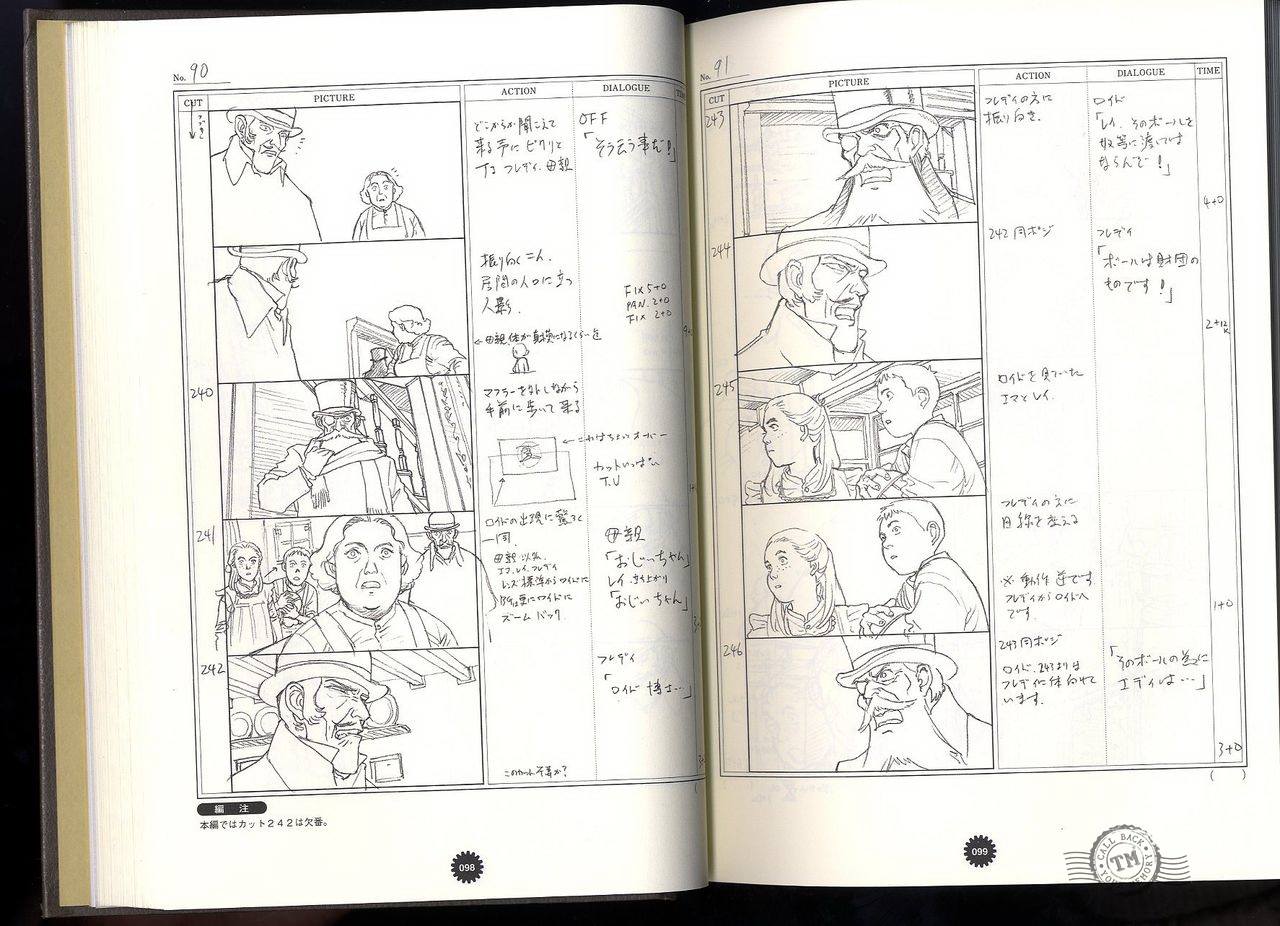 No. 90
CUT PICTURE ACTION DIALOGUE
どこからか聞こえて
来る声にビクリと
する フレディ、母親
OFF
「そう云う事だ!」
振り向くこん、
居間の入口に立つ
人影.
FIX 5+0
PAN. 2+0
FIX 2+0
240
マフラーを外しながら
手前に歩いて来る
カットいっぱい
T.U
241
ロイドの出現に驚く
一同
母親以外、
エマ、レイ、フレディ
ズームバック
母親
「おじいちゃん」
レイ 立上がり
「おじいちゃん」
242
フレディ
「ロイド博士…」
編 注
本編ではカット242は欠番。
098
No. 91
CUT PICTURE ACTION DIALOGUE TIME
243
フレディの方に
振り向き.
ロイド
「レイ、そのボールを
奴等に渡しては
ならんぞ!」
4+0
244
242 同ポジ
フレディ
「ボールは財団の
ものです!」
2+12K
245
ロイドを見ていた
エマとレイ.
フレディの方に
目線を変える
※ 動作逆です
フレディからロイドへ
です.
1+0
246
243 同ポジ
ロイド、243よりは
フレディに体向けて
います.
「そのボールの為に
エディは…」
3+0
( )
099
CALL BACK
TM
YOUR MEMORY